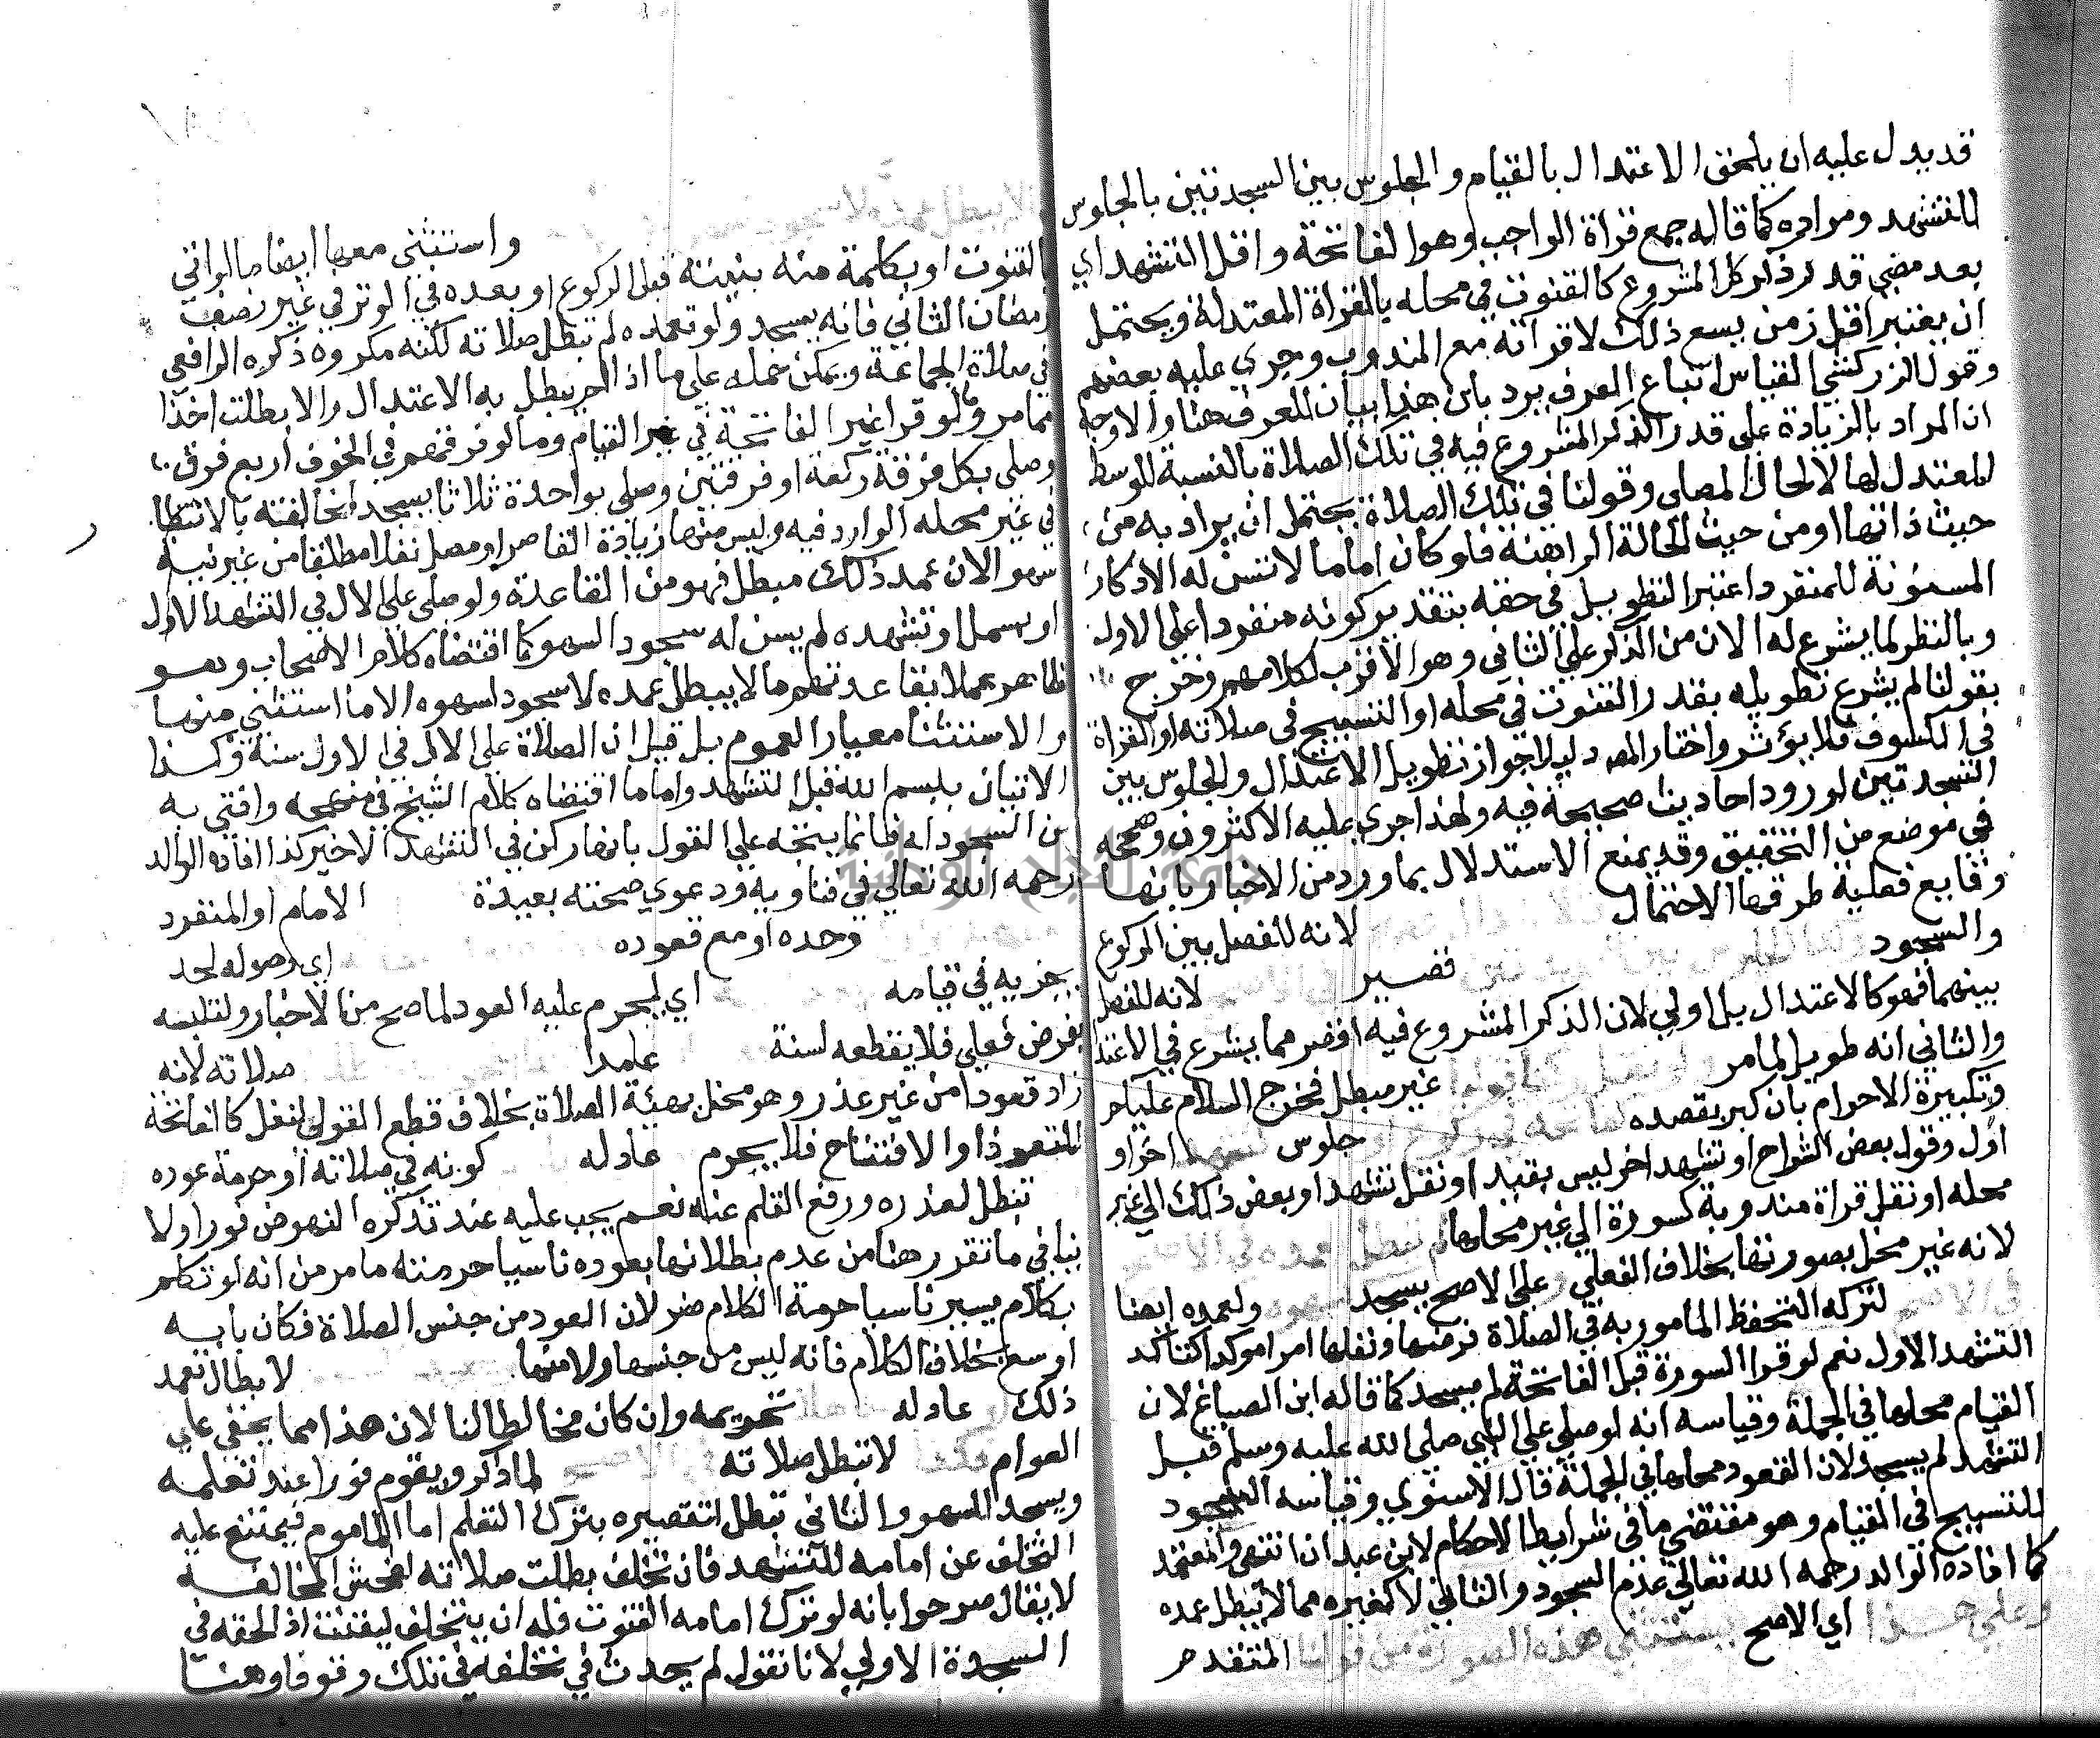 قد يدل عليه ان يلحق الاعتدال بالقيام والجلوس بين السجدتين بالجلوس
للتشهد ومراده كما قاله جمع قراة الواجب وهو الفاتحة واقل التشهد اي
بعد مضي قدر ذكر كل المشروع كالقنوت في محله بالقراة المعتدلة ويحتمل
ان يعتبر اقل زمن يسع ذلك لا قراته مع المندوب وجري عليه بعضهم
وقول الزركشي القياس اتباع العرف يرد بان هذا بيان للعرف هنا والاوجه
ان المراد بالزيادة علي قدر الذكر المشروع فيه في تلك الصلاة بالنسبة للوسط
المعتدل لها لا لحال المصلي وقولنا في تلك الصلاة يحتمل ان يراد به من
حيث ذاتها او من حيث الحالة الراهنة فلو كان اماما لا تسن له الاذكار
المسنونة للمنفرد اعتبر التطويل في حقه بتقدير كونه منفردا علي الاول
وبالنظر لما يشرع له الان من الذكر علي الثاني وهو الاقرب لكلامهم وخرج
بقولنا لم يشرع تطويله بقدر القنوت في محله او التسبيح في صلاته او القراة
في الكسوف فلا يؤثر واختار المص دليلا جواز تطويل الاعتدال والجلوس بين
السجدتين لورود احاديث صحيحة فيه ولهذا جري عليه الاكثرون وصححه
في موضع من التحقيق وقد يمنع الاستدلال بما ورد من الاخبار بانها
وقايع فعلية طرقها الاحتمال
لانه للفصل بين الركوع
والسجود
قصير
لانه للفصل
بينهما فهو كالاعتدال بل اولي لان الذكر المشروع فيه اقصر مما يشرع في الاعتدا
والثاني انه طويل لما مر
غير مبطل فخرج السلام عليكم
وتكبيرة الاحرام بان كبر يقصده
جلوس
اخر او
اول وقول بعض الشراح او تشهد اخر ليس بقيد او نقل تشهد او بعض ذلك الي غير
محله او نقل قراة مندوبة كسورة الي غير محلها
لانه غير مخل بصورتها بخلاف الفعلي وعلي الاصح يسجد
ولعمده ايضا
لتركه التحفظ المامور به في الصلاة فرضها ونفلها امرا موكدا كتاكد
التشهد الاول نعم لو قرا السورة قبل الفاتحة لم يسجد كما قاله ابن الصباغ لان
القيام محلها في الجملة وقياسه انه لو صلي علي النبي صلي الله عليه وسلم قبل
التشهد لم يسجد لان القعود محلها في الجملة قال الاسنوي وقياسه السجود
للتسبيح في القيام وهو مقتضي ما في شرايط الاحكام لابن عبدان انتهي والمعتمد
كما افاده الوالد رحمه الله تعالي عدم السجود والثاني لا كغيره مما لا يبطل عمده
وعلي هذا اي الاصح تستثني هذه الصورة من قولنا المتقدم
واستثني معها ايضا ما لو اتي
بالقنوت او بكلمة منه بنيته قبل الركوع او بعده في الوتر في غير نصف
رمضان الثاني فانه يسجد ولو تعمده لم تبطل صلاته لكنه مكروه ذكره الرافعي
في صلاة الجماعة ويمكن حمله علي ما اذا لم يبطل به الاعتدال والا بطلت اخذا
مما مر ولو قرا غير الفاتحة في غير القيام وما لو فرقهم في الخوف اربع فرق
وصلي بكل فرقة ركعة او فرقتين وصلي بواحدة ثلاثا يسجد لمخالفته بالانتظار
في غير محله الوارد فيه وليس منها زيادة القاصر او مصل نفلا مطلقا من غير نية
سهوا لان عمد ذلك مبطل فهو من القاعدة ولو صلي علي الال في التشهد الاول
او بسمل اول تشهده لم يسن له سجود السهو كما اقتضاه كلام الاصحاب وهو
ظاهر عملا بقاعدتهم ما لا يبطل عمده لا سجود لسهوه الا ما استثني منها
والاستثنا معيار العموم بل قيل ان الصلاة علي الال في الاول سنة وكذا
الاتيان ببسم الله قبل التشهد واما ما اقتضاه كلام الشيخ في منهجه وافتي به
من السجود له فانما يتجه علي القول بانها ركن في التشهد الاخير كذا افاده الوالد
رحمه الله تعالي في فتاويه ودعوي صحته بعيدة
الامام او المنفرد
وحده او مع قعوده
اي وصوله لحد
يجزيه في قيامه
اي يحرم عليه العود لما صح من الاخبار ولتلبسه
بفرض فعلي فلا يقطعه لسنة
عامدا
صلاته لانه
زاد قعودا من غير عذر وهو مخل بهيئة الصلاة بخلاف قطع القولي لنفل كالفاتحة
للتعوذ او الافتتاح فلا يحرم
عادله
كونه في صلاته او حرمة عوده
تبطل لعذره ورفع القلم عنه نعم يجب عليه عند تذكره النهوض فورا ولا
ينافي ما تقرر هنا من عدم بطلانها بعوده ناسيا حرمته ما مر من انه لو تكلم
بكلام يسير ناسيا حرمة الكلام ضر لان العود من جنس الصلاة فكان بابه
اوسع بخلاف الكلام فانه ليس من جنسها ولا منها
لابطال تعمد
ذلك
عادله
تحريمه وان كان مخالطا لنا لان هذا مما يخفي علي
العوام
لا تبطل صلاته
لما ذكر ويقوم فورا عند تعلمه
ويسجد للسهو والثاني تبطل لتقصيره بترك التعلم اما الماموم فيمتنع عليه
التخلف عن امامه للتشهد فان تخلف بطلت صلاته لفحش المخالفة
لا يقال صرحوا بانه لو ترك امامه القنوت فله ان يتخلف ليقنت اذا لحقه في
السجدة الاولي لانا نقول لم يحدث في تخلفه في تلك وقوفا وهنا